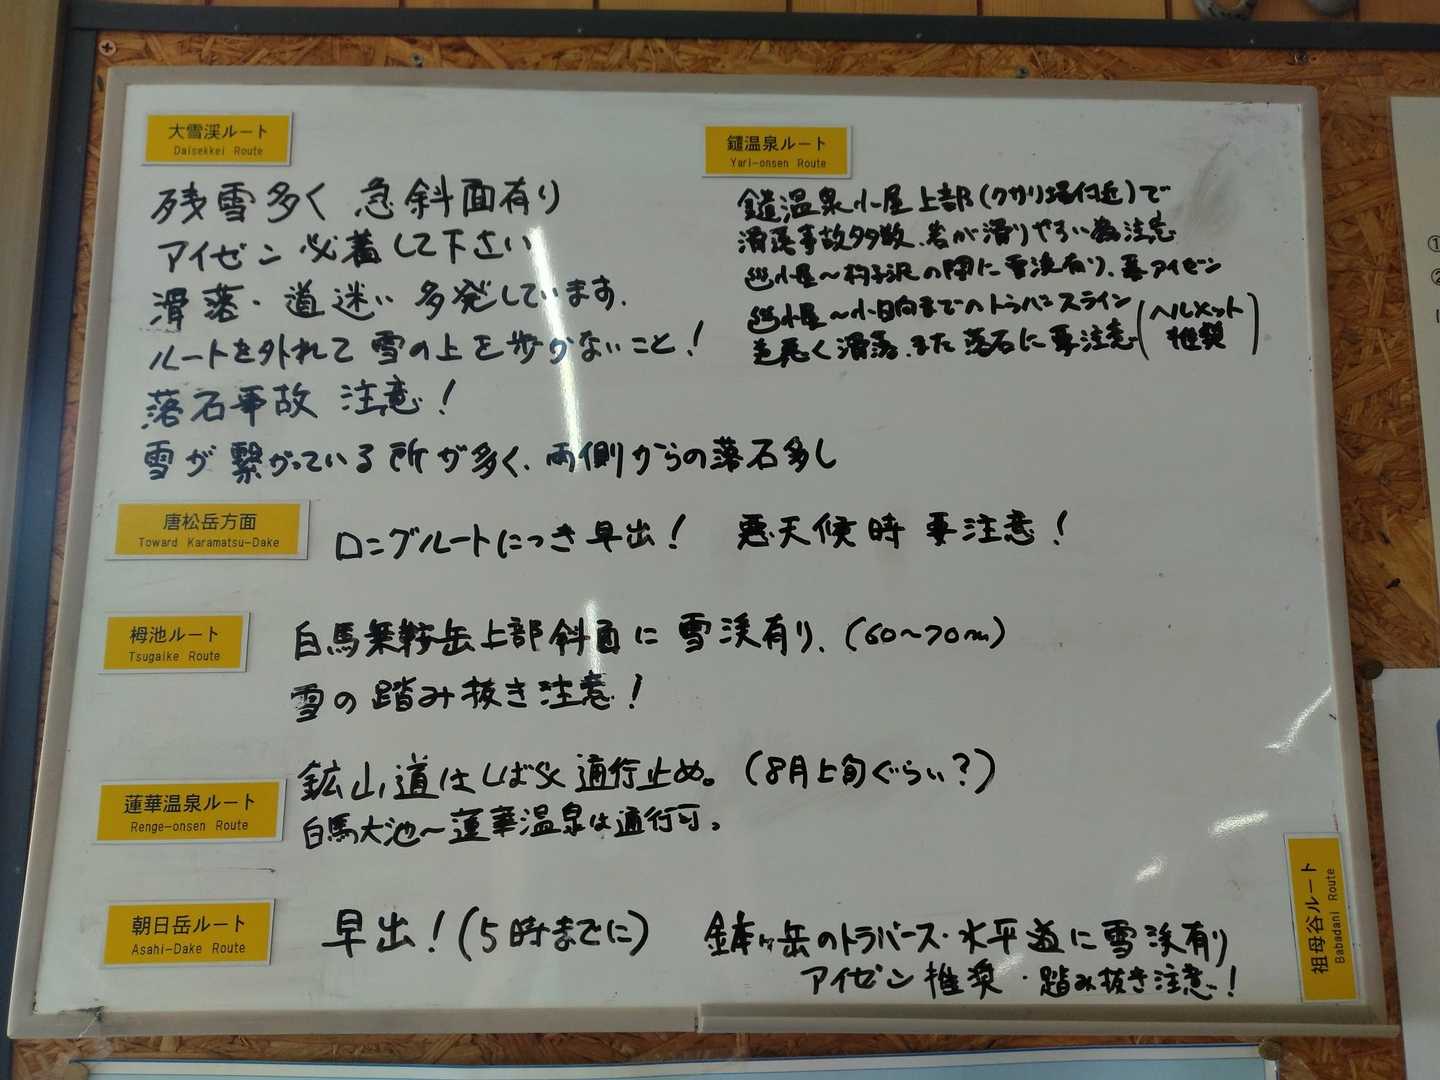 大雪渓ルート
Daisekkei Route
残雪多く 急斜面有り
アイゼン必着して下さい
滑落・道迷い 多発しています.
ルートを外れて 雪の上を歩かないこと!
落石事故 注意!
雪が繋がっている所が多く、両側からの落石多し
鑓温泉ルート
Yari-onsen Route
鑓温泉小屋上部(クサリ場付近)で
滑落事故多数、岩が滑りやすい為注意
小屋～杓子沢の間に雪渓有り、要アイゼン
小屋～小日向までのトラバースライン
足悪く滑落、また落石に要注意(ヘルメット
推奨)
唐松岳方面
Toward Karamatsu-Dake
ロングルートにつき早出! 悪天候時 要注意!
栂池ルート
Tsugaike Route
白馬乗鞍岳上部斜面に 雪渓有り、(60～70m)
雪の踏み抜き注意!
蓮華温泉ルート
Renge-onsen Route
鉱山道はしばらく通行止め。(8月上旬ぐらい?)
白馬大池～蓮華温泉は通行可。
朝日岳ルート
Asahi-Dake Route
早出!(5時までに) 鉢ヶ岳のトラバース・水平道に雪渓有り
アイゼン推奨・踏み抜き注意!
祖母谷ルート
Babadani Route